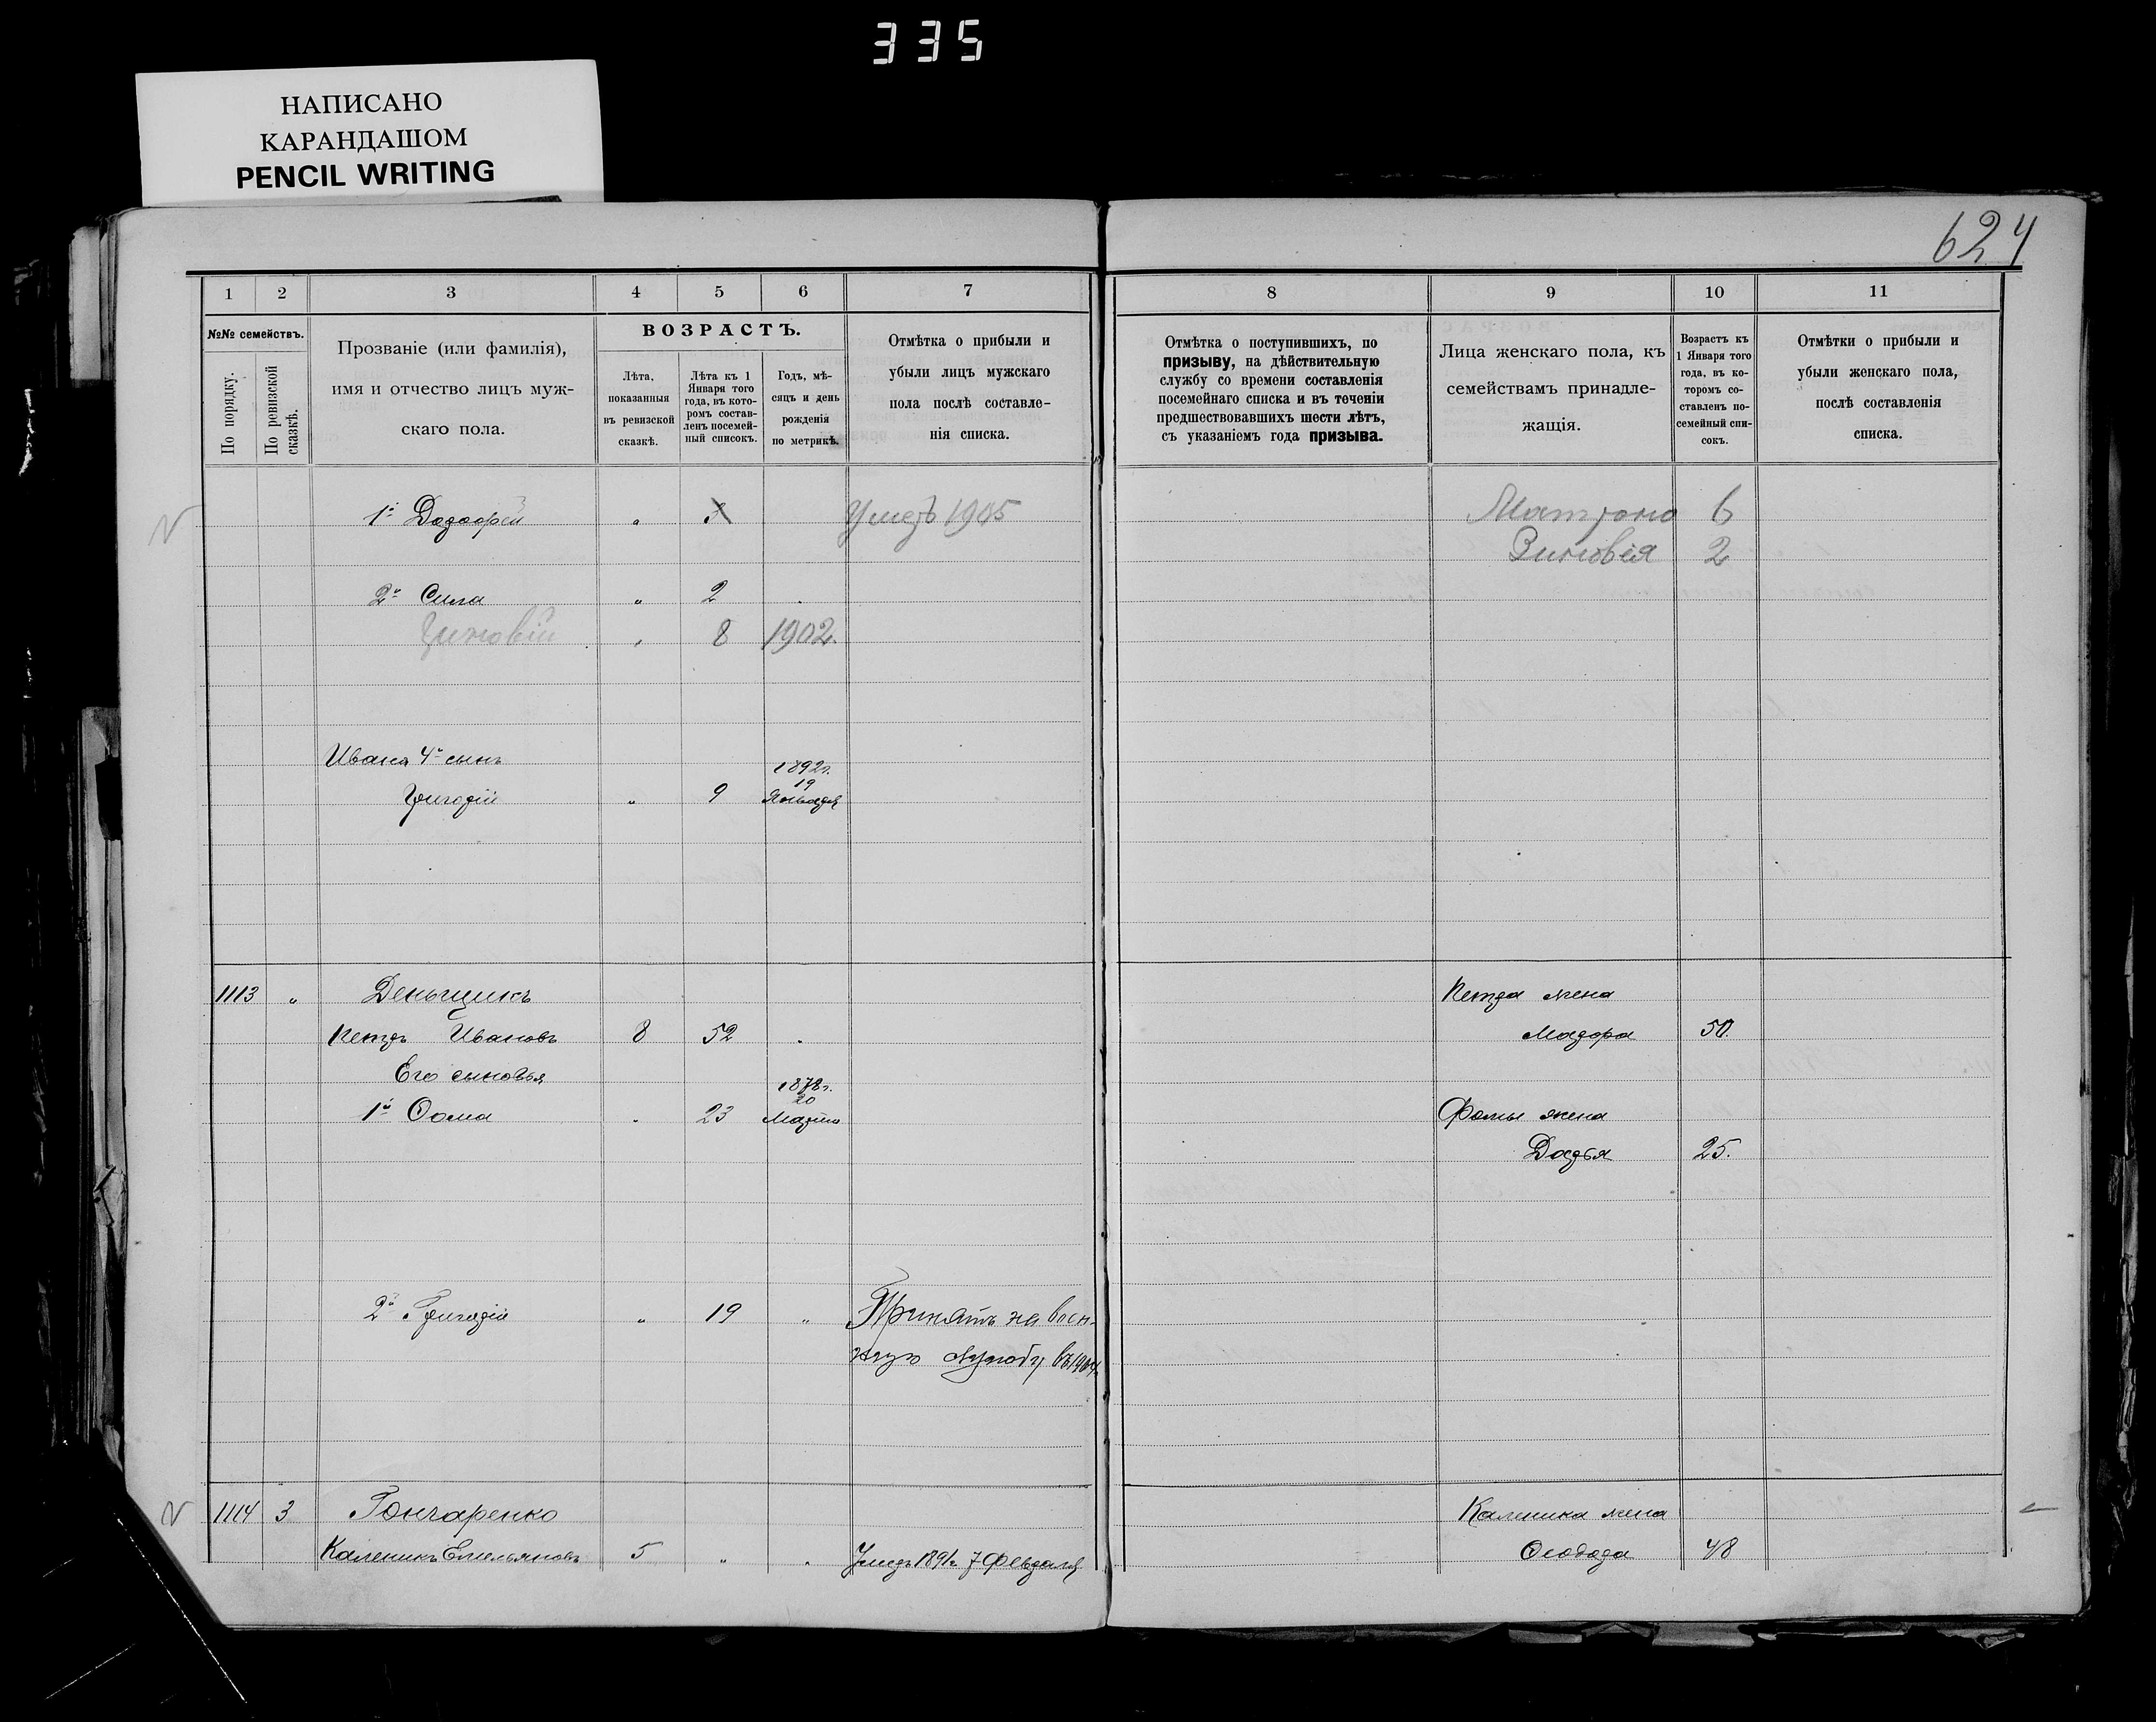 335
НАПИСАНО
КАРАНДАШОМ
PENCIL WRITING
624
1 2 3 4 5 6 7 8 9 10 11
№№ семействъ.
По порядку.
По ревизской сказкѣ.
Прозваніе (или фамилія),
имя и отчество лицъ муж-
скаго пола.
ВОЗРАСТЪ.
Лѣта,
показанныя
въ ревизской
сказкѣ.
Лѣта къ 1
Января того
года, въ кото-
ромъ состав-
ленъ посемей-
ный списокъ.
Годъ, мѣ-
сяцъ и день
рожденія
по метрикѣ.
Отмѣтка о прибыли и
убыли лицъ мужскаго
пола послѣ составле-
нія списка.
Отмѣтка о поступившихъ, по
призыву, на дѣйствительную
службу со времени составленія
посемейнаго списка и въ теченіи
предшествовавшихъ шести лѣтъ,
съ указаніемъ года призыва.
Лица женскаго пола, къ
семействамъ принадле-
жащія.
Возрастъ къ
1 Января того
года, въ ко-
торомъ со-
ставленъ по-
семейный спи-
сокъ.
Отмѣтки о прибыли и
убыли женскаго пола,
послѣ составленія
списка.
1й " Умеръ 1905 Матрона 6
Зиновія 2
2й Сила " 2
Зиновій " 8 1902.
Ивана 4й сынъ 1892г.
19
Григорій " 9 Января
1113 " Денщикъ Петра жена
Петръ Ивановъ 8 52 Мавра 50.
Его сыновья 1878г.
20
1й Ѳома 23 Марта Фомы жена
Дарья 25.
2й Григорій " 19 " Принятъ на воен-
ную службу въ 1904
1114 3 Гончаренко Каленика жена
Каленикъ Емельяновъ 5 " Умеръ 1891г. 7 Февраля Ѳеодора 48